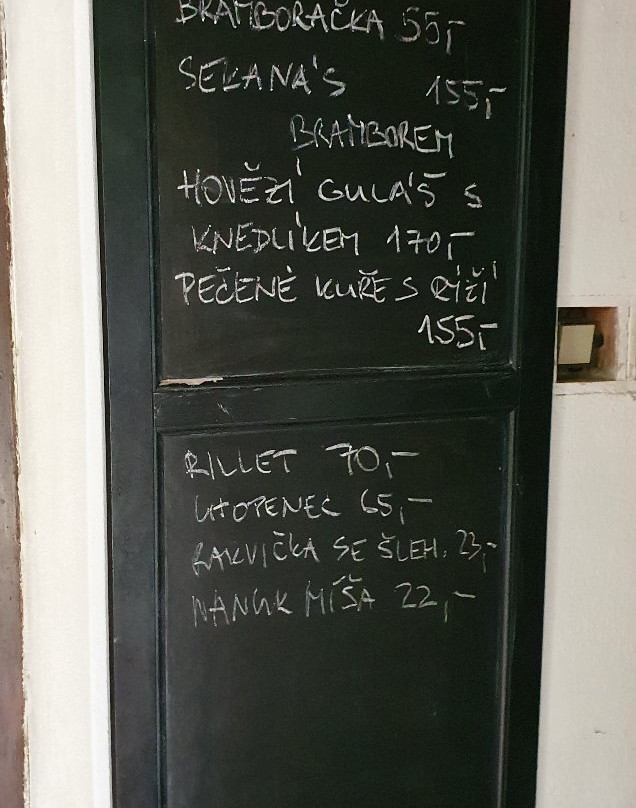 BRAMBORAČKA 55,-
SEKANÁ S 155,-
BRAMBOREM
HOVĚZÍ GULÁŠ S
KNEDLÍKEM 170,-
PEČENÉ KUŘE S RÝŽÍ
155,-
RILLET 70,-
UTOPENEC 65,-
RAKVIČKA SE ŠLEH. 23,-
NANUK MÍŠA 22,-